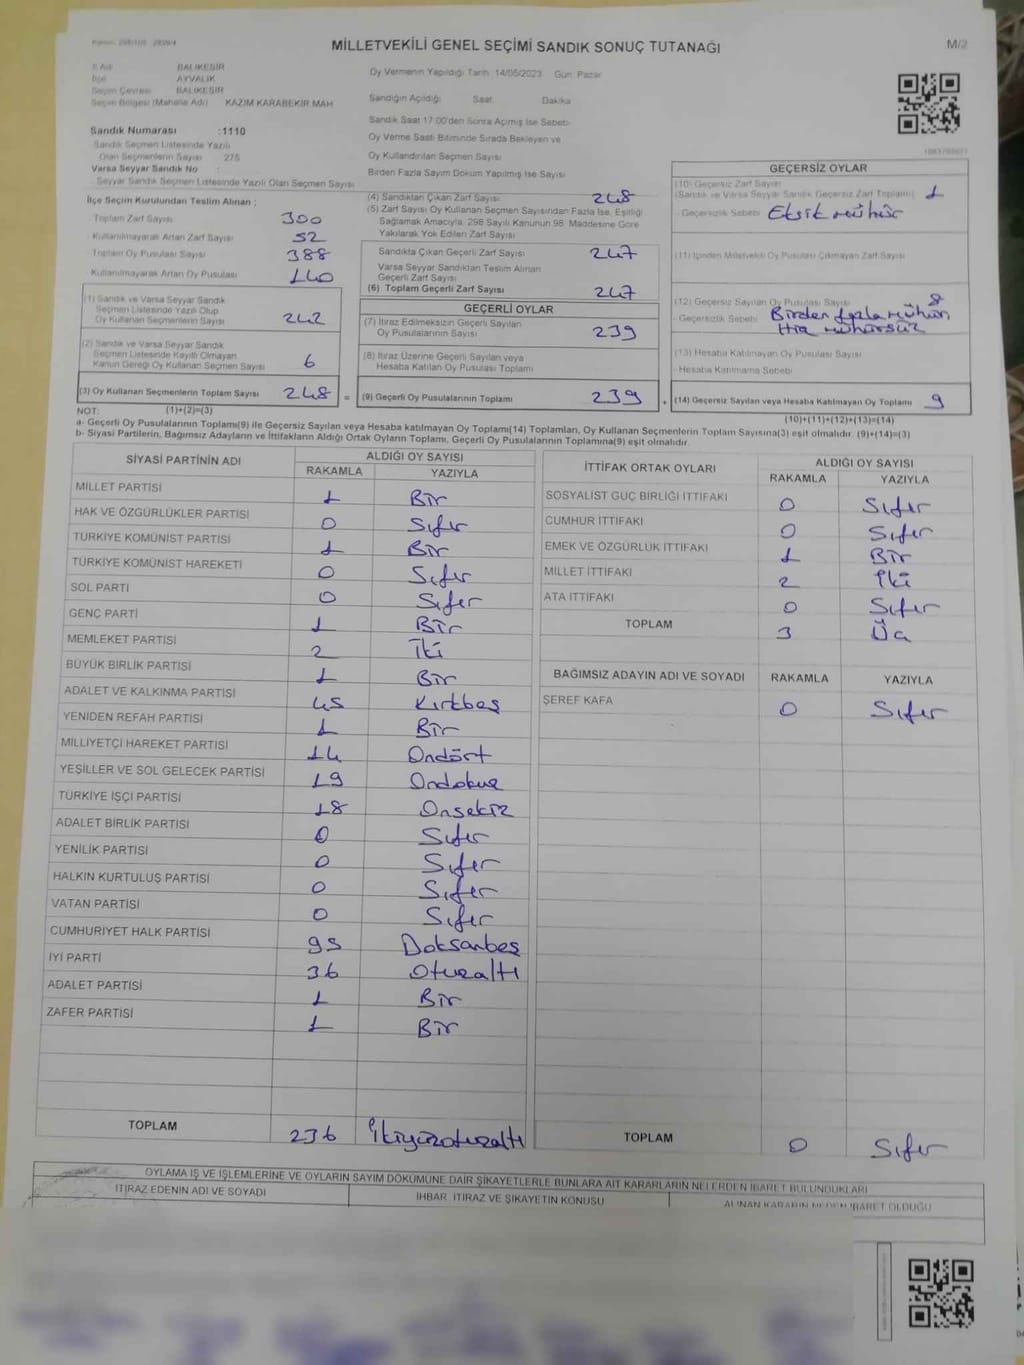 MİLLETVEKİLİ GENEL SEÇİMİ SANDIK SONUÇ TUTANAĞI
M/2
İl Adı BALIKESİR
İlçe AYVALIK
Seçim Çevresi BALIKESİR
Seçim Bölgesi (Mahalle Adı) KAZIM KARABEKİR MAH
Sandık Numarası :1110
Sandık Seçmen Listesinde Yazılı
Olan Seçmenlerin Sayısı 275
Varsa Seyyar Sandık No
- Seyyar Sandık Seçmen Listesinde Yazılı Olan Seçmen Sayısı
İlçe Seçim Kurulundan Teslim Alınan ;
- Toplam Zarf Sayısı 300
- Kullanılmayarak Artan Zarf Sayısı 52
- Toplam Oy Pusulası Sayısı 388
- Kullanılmayarak Artan Oy Pusulası 140
(1) Sandık ve Varsa Seyyar Sandık
Seçmen Listesinde Yazılı Olup
Oy Kullanan Seçmenlerin Sayısı 242
(2) Sandık ve Varsa Seyyar Sandık
Seçmen Listesinde Kayıtlı Olmayan
Kanun Gereği Oy Kullanan Seçmen Sayısı 6
(3) Oy Kullanan Seçmenlerin Toplam Sayısı 248 =
Oy Vermenin Yapıldığı Tarih 14/05/2023 Gün Pazar
Sandığın Açıldığı Saat Dakika
Sandık Saat 17:00'den Sonra Açılmış İse Sebebi
Oy Verme Saati Bitiminde Sırada Bekleyen ve
Oy Kullandırılan Seçmen Sayısı
Birden Fazla Sayım Döküm Yapılmış İse Sayısı
(4) Sandıktan Çıkan Zarf Sayısı 248
(5) Zarf Sayısı Oy Kullanan Seçmen Sayısından Fazla İse, Eşitliği
Sağlamak Amacıyla 298 Sayılı Kanunun 98. Maddesine Göre
Yakılarak Yok Edilen Zarf Sayısı
Sandıkta Çıkan Geçerli Zarf Sayısı 247
Varsa Seyyar Sandıktan Teslim Alınan
Geçerli Zarf Sayısı
(6) Toplam Geçerli Zarf Sayısı 247
GEÇERLİ OYLAR
(7) İtiraz Edilmeksizin Geçerli Sayılan
Oy Pusulalarının Sayısı 239
(8) İtiraz Üzerine Geçerli Sayılan veya
Hesaba Katılan Oy Pusulası Toplamı
(9) Geçerli Oy Pusulalarının Toplamı 239 +
GEÇERSİZ OYLAR
(10) Geçersiz Zarf Sayısı
(Sandık ve Varsa Seyyar Sandık Geçersiz Zarf Toplamı) 1
- Geçersizlik Sebebi Eksik mühür
(11) İçinden Milletvekili Oy Pusulası Çıkmayan Zarf Sayısı
(12) Geçersiz Sayılan Oy Pusulası Sayısı 8
- Geçersizlik Sebebi Birden fazla mühür,
Hiç mühürsüz
(13) Hesaba Katılmayan Oy Pusulası Sayısı
- Hesaba Katılmama Sebebi
(14) Geçersiz Sayılan veya Hesaba Katılmayan Oy Toplamı 9
NOT: (1)+(2)=(3)
(10)+(11)+(12)+(13)=(14)
a- Geçerli Oy Pusulalarının Toplamı(9) ile Geçersiz Sayılan veya Hesaba katılmayan Oy Toplamı(14) Toplamları, Oy Kullanan Seçmenlerin Toplam Sayısına(3) eşit olmalıdır. (9)+(14)=(3)
b- Siyasi Partilerin, Bağımsız Adayların ve İttifakların Aldığı Ortak Oyların Toplamı, Geçerli Oy Pusulalarının Toplamına(9) eşit olmalıdır.
SİYASİ PARTİNİN ADI ALDIĞI OY SAYISI
RAKAMLA YAZIYLA
MİLLET PARTİSİ 1 Bir
HAK VE ÖZGÜRLÜKLER PARTİSİ 0 Sıfır
TÜRKİYE KOMÜNİST PARTİSİ 1 Bir
TÜRKİYE KOMÜNİST HAREKETİ 0 Sıfır
SOL PARTİ 0 Sıfır
GENÇ PARTİ 1 Bir
MEMLEKET PARTİSİ 2 İki
BÜYÜK BİRLİK PARTİSİ 1 Bir
ADALET VE KALKINMA PARTİSİ 45 Kırkbeş
YENİDEN REFAH PARTİSİ 1 Bir
MİLLİYETÇİ HAREKET PARTİSİ 14 Ondört
YEŞİLLER VE SOL GELECEK PARTİSİ 19 Ondokuz
TÜRKİYE İŞÇİ PARTİSİ 18 Onsekiz
ADALET BİRLİK PARTİSİ 0 Sıfır
YENİLİK PARTİSİ 0 Sıfır
HALKIN KURTULUŞ PARTİSİ 0 Sıfır
VATAN PARTİSİ 0 Sıfır
CUMHURİYET HALK PARTİSİ 95 Doksanbeş
İYİ PARTİ 36 Otuzaltı
ADALET PARTİSİ 1 Bir
ZAFER PARTİSİ 1 Bir
TOPLAM 236 İkiyüzotuzaltı
İTTİFAK ORTAK OYLARI ALDIĞI OY SAYISI
RAKAMLA YAZIYLA
SOSYALİST GÜÇ BİRLİĞİ İTTİFAKI 0 Sıfır
CUMHUR İTTİFAKI 0 Sıfır
EMEK VE ÖZGÜRLÜK İTTİFAKI 1 Bir
MİLLET İTTİFAKI 2 İki
ATA İTTİFAKI 0 Sıfır
TOPLAM 3 Üç
BAĞIMSIZ ADAYIN ADI VE SOYADI RAKAMLA YAZIYLA
ŞEREF KAFA 0 Sıfır
TOPLAM 0 Sıfır
OYLAMA İŞ VE İŞLEMLERİNE VE OYLARIN SAYIM DÖKÜMÜNE DAİR ŞİKAYETLERLE BUNLARA AİT KARARLARIN NELERDEN İBARET BULUNDUKLARI
İTİRAZ EDENİN ADI VE SOYADI İHBAR İTİRAZ VE ŞİKAYETİN KONUSU ALINAN KARARIN NEDEN İBARET OLDUĞU